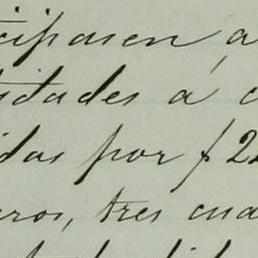 cipasen a
sidades á c
idas por f 22
eros, tres cua